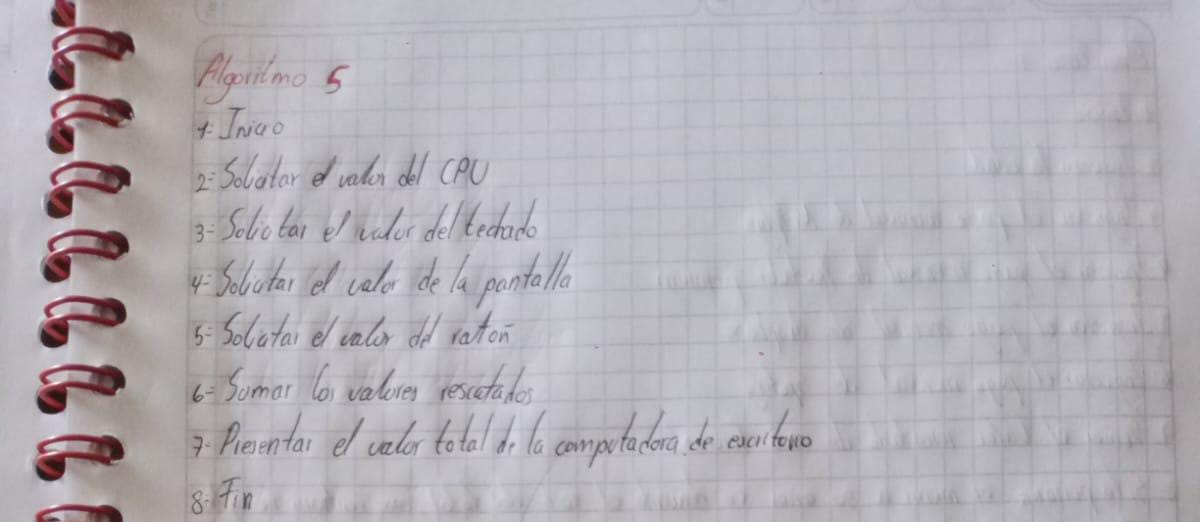 Algoritmo 5
1- Inicio
2- Solicitar el valor del CPU
3- Solicitar el valor del techado
4- Solicitar el valor de la pantalla
5- Solicitar el valor del ratón
6- Sumar los valores rescatados
7- Presentar el valor total de la computadora de escritorio
8- Fin